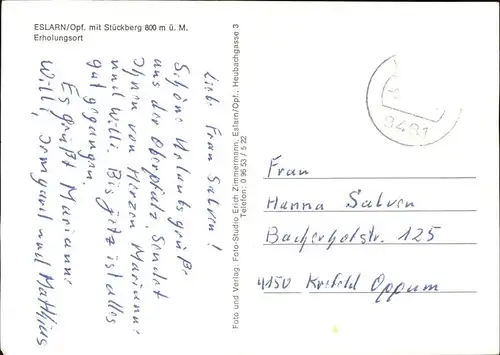 ESLARN/Opf. mit Stückberg 800 m ü. M.
Erholungsort
Liebe Frau Salven!
Schöne Urlaubsgrüße
aus der Oberpfalz. Sendet
Ihnen von Herzen Marianne
und Willi. Bis jetzt ist alles
gut gegangen.
Es grüßt Marianne
Willi, Irmgard und Matthias
Foto und Verlag: Foto-Studio Erich Zimmermann, Eslarn/Opf., Heubachgasse 3
Telefon: 0 96 53 / 5 22
8481
Frau
Hanna Salven
Backerhofstr. 125
4150 Krefeld Oppum